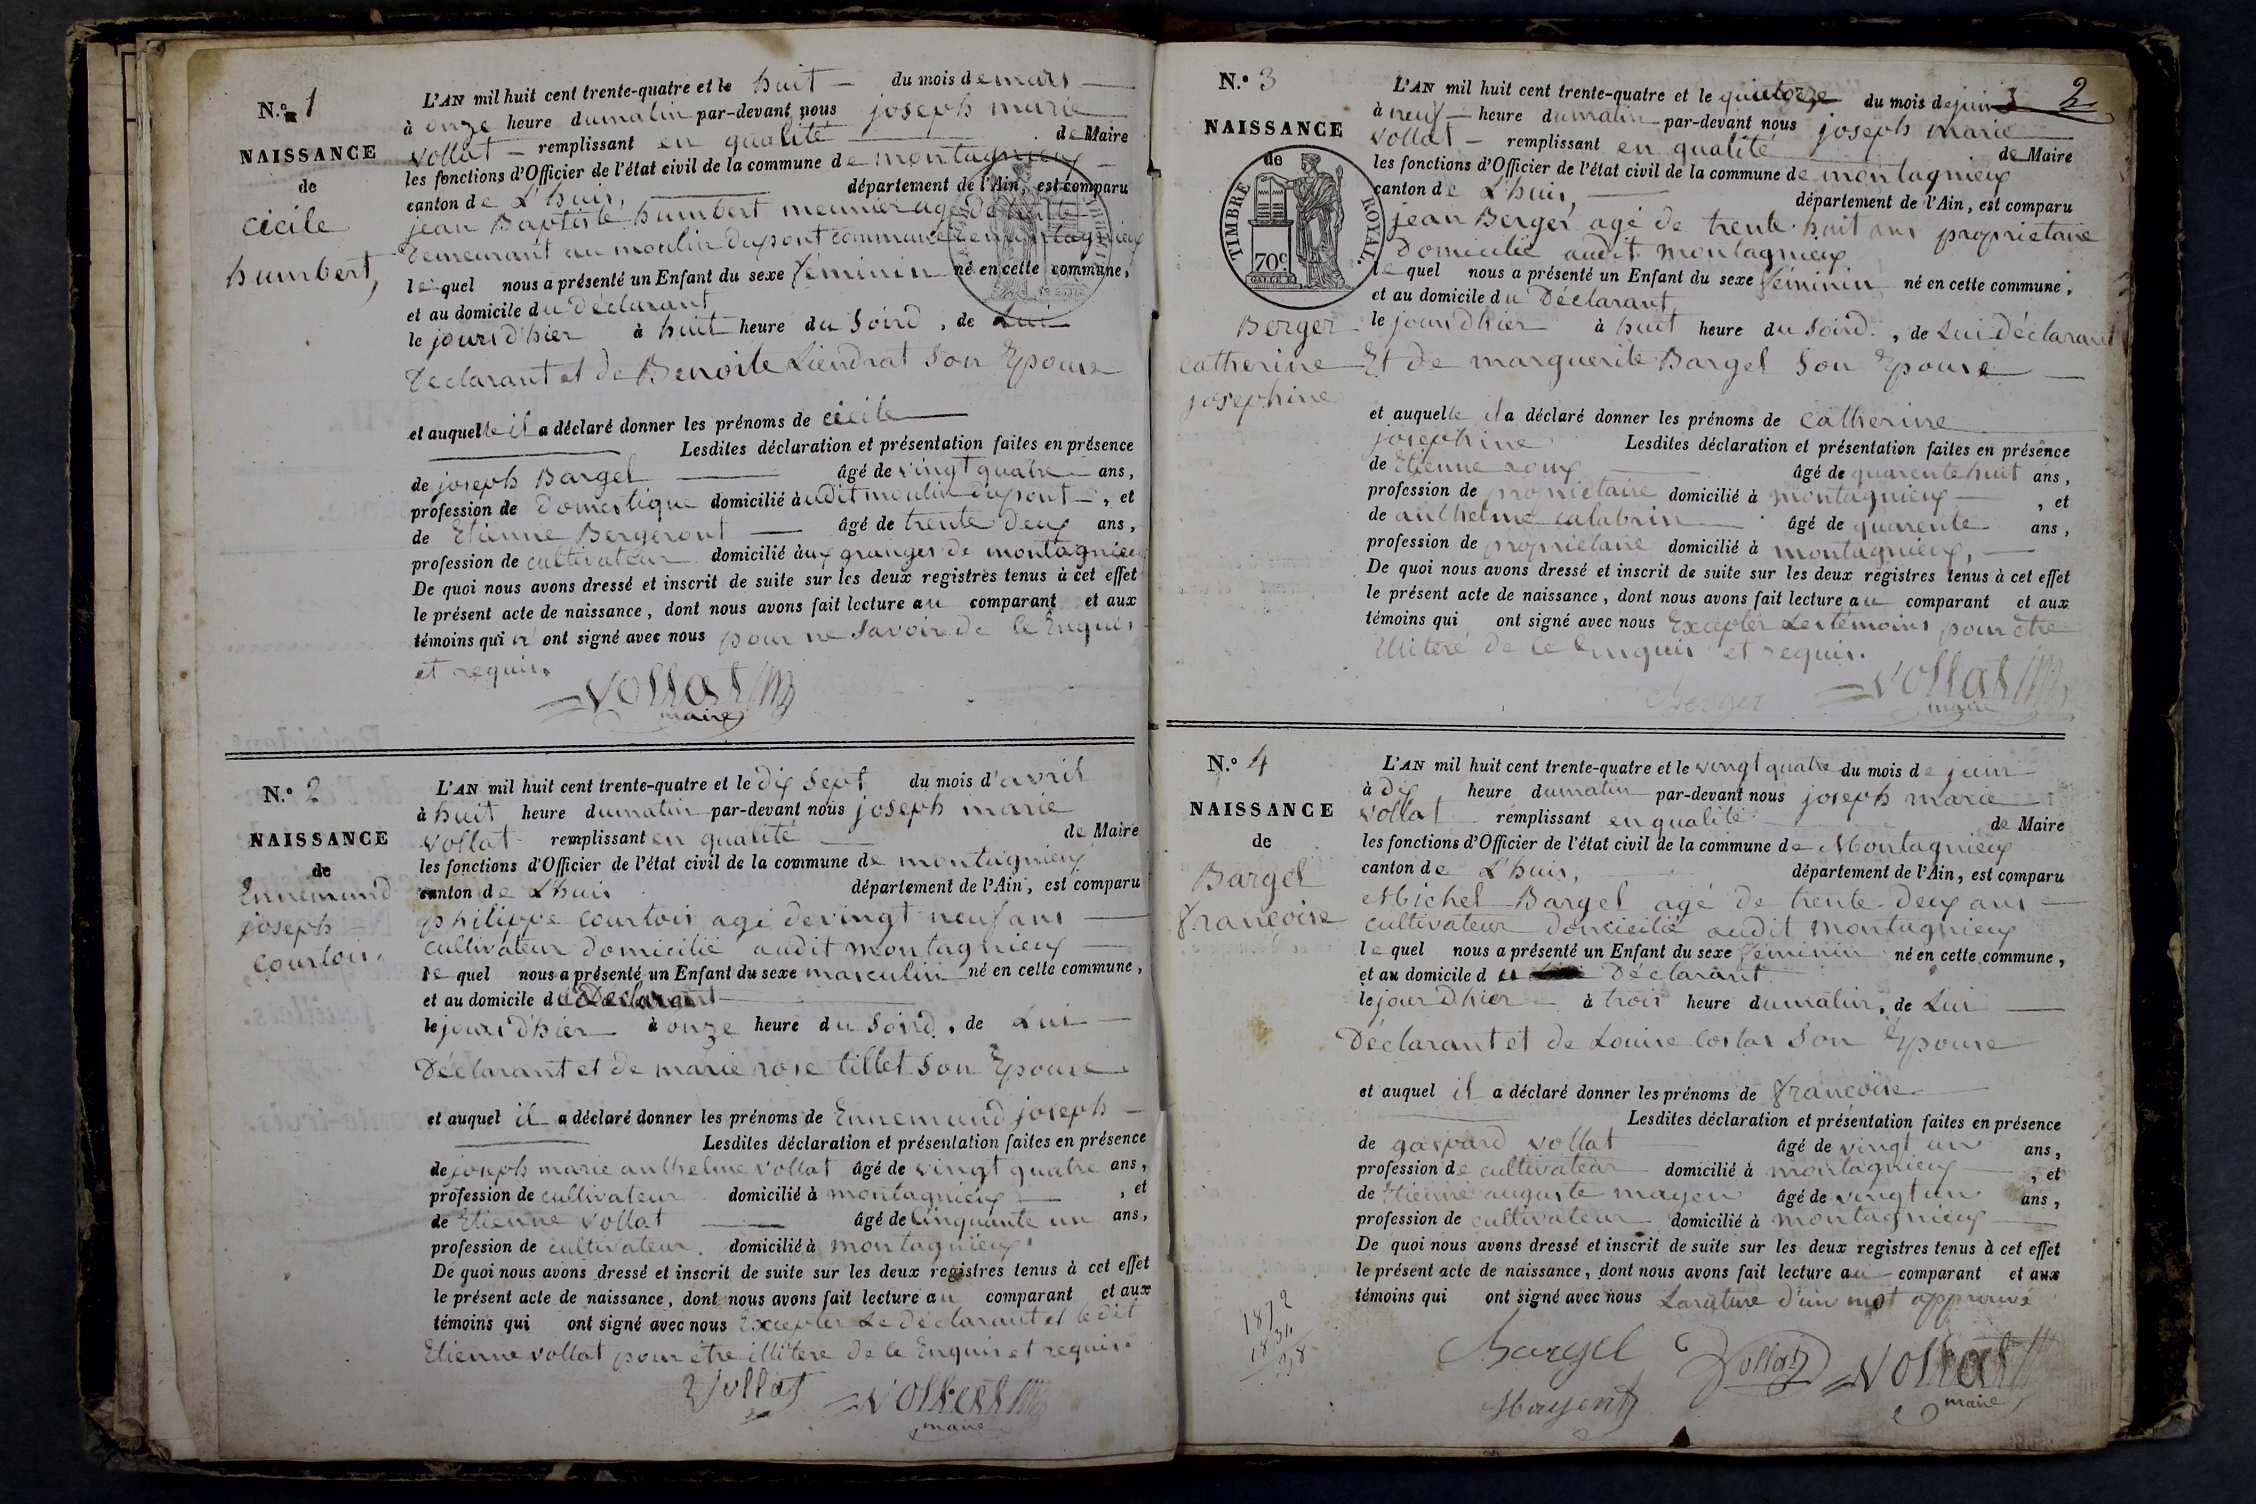 N.° 1
NAISSANCE
de
cicile
humbert,
L'AN mil huit cent trente-quatre et le huit du mois de mars
à onze heure dumatin par-devant nous joseph marie
vollat remplissant en qualité de Maire
les fonctions d'Officier de l'état civil de la commune de montagnieux
canton de L'huis, département de l'Ain, est comparu
jean Baptiste humbert meunier agé de trente
Demeurant au moulin dupont commune de montagnieux
lequel nous a présenté un Enfant du sexe féminin né en cette commune,
et au domicile du Déclarant
le jours d'hier à huit heure du Soird, de Lui
Declarant et de Benoite Liendrat Son Epouse
et auquelle il a déclaré donner les prénoms de cicile
Lesdites déclaration et présentation faites en présence
de joseph Bargel âgé de vingt quatre ans,
profession de Domestique domicilié àudit moulin dupont, et
de Etienne Bergeront âgé de trente Deux ans,
profession de cultivateur domicilié àux granges de montagnieux
De quoi nous avons dressé et inscrit de suite sur les deux registres tenus à cet effet
le présent acte de naissance, dont nous avons fait lecture au comparant et aux
témoins qui n'ont signé avec nous pour ne Savoir de ce Enquis
et requis.
Vollat
maire
N.° 2
NAISSANCE
de
Ennemond
joseph
Courtois,
L'AN mil huit cent trente-quatre et le dix Sept du mois d'avril
à huit heure dumatin par-devant nous joseph marie
vollat remplissant en qualité de Maire
les fonctions d'Officier de l'état civil de la commune de montagnieux
canton de L'huis département de l'Ain, est comparu
philippe courtois agé de vingt neuf ans
cultivateur domicilié audit montagnieux
le quel nous a présenté un Enfant du sexe masculin né en cette commune,
et au domicile du Déclarant
le jours d'hier à onze heure du Soird, de Lui
Déclarant et de marie rose tillet Son Epouse
et auquel il a déclaré donner les prénoms de Ennemund joseph
Lesdites déclaration et présentation faites en présence
de joseph marie anthelme vollat âgé de vingt quatre ans,
profession de cultivateur domicilié à montagnieux, et
de Etienne vollat âgé de Cinquante un ans,
profession de cultivateur domicilié à montagnieux
De quoi nous avons dressé et inscrit de suite sur les deux registres tenus à cet effet
le présent acte de naissance, dont nous avons fait lecture au comparant et aux
témoins qui ont signé avec nous Excepter Le déclarant et le dit
Etienne vollat pour être illitere De ce Enquis et requis.
Vollat Vollat
maire
2
N.° 3
NAISSANCE
de
TIMBRE ROYAL.
70c
Berger
catherine
josephine
L'AN mil huit cent trente-quatre et le quintorze du mois de juin
à neuf heure dumatin par-devant nous joseph marie
vollat remplissant en qualité de Maire
les fonctions d'Officier de l'état civil de la commune de montagnieux
canton de L'huis, département de l'Ain, est comparu
jean Berger agé de trente huit ans proprietaire
Domicilié audit montagnieux
le quel nous a présenté un Enfant du sexe féminin né en cette commune,
et au domicile du Déclarant
le jours d'hier à huit heure du Soird, de Lui Déclarant
Et de marguerite Bargel Son Epouse
et auquelle il a déclaré donner les prénoms de catherine
josephine Lesdites déclaration et présentation faites en présence
de Etienne roux âgé de quarente huit ans,
profession de proprietaire domicilié à montagnieux, et
de anthelme calabrin âgé de quarente ans,
profession de proprietaire domicilié à montagnieux,
De quoi nous avons dressé et inscrit de suite sur les deux registres tenus à cet effet
le présent acte de naissance, dont nous avons fait lecture au comparant et aux
témoins qui ont signé avec nous Excepter Les témoins pour être
illiteré de ce Enquis et requis.
Berger Vollat
maire
N.° 4
NAISSANCE
de
Bargel
francoise
L'AN mil huit cent trente-quatre et le vingt quatre du mois de juin
à dix heure dumatin par-devant nous joseph marie
vollat remplissant en qualité de Maire
les fonctions d'Officier de l'état civil de la commune de Montagnieux
canton de L'huis, département de l'Ain, est comparu
Michel Bargel agé de trente Deux ans
cultivateur domicilié audit montagnieux
le quel nous a présenté un Enfant du sexe féminin né en cette commune,
et au domicile du Déclarant
le jour d'hier à trois heure dumatin, de Lui
Déclarant et de Louise Costas Son Epouse
et auquel il a déclaré donner les prénoms de francoise
Lesdites déclaration et présentation faites en présence
de gaspard vollat âgé de vingt un ans,
profession de cultivateur domicilié à montagnieux, et
de Etienne auguste mayen âgé de vingt un ans,
profession de cultivateur domicilié à montagnieux
De quoi nous avons dressé et inscrit de suite sur les deux registres tenus à cet effet
le présent acte de naissance, dont nous avons fait lecture au comparant et aux
témoins qui ont signé avec nous La rature d'un mot approuvé
1872
1834
38
Bargel Vollat Vollat
Mayent maire